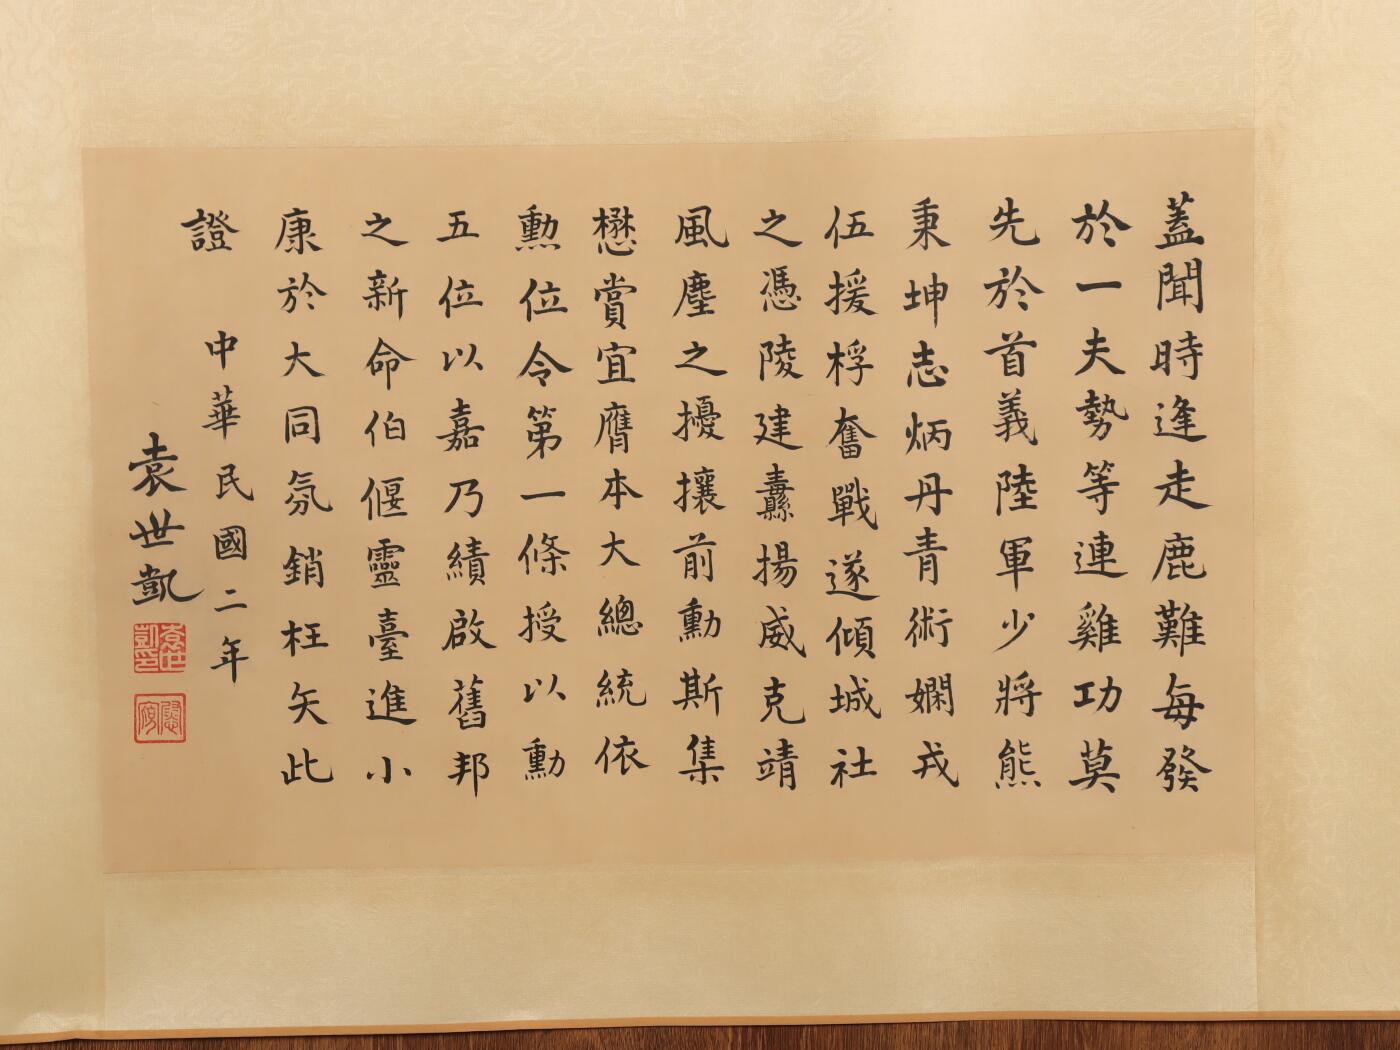 蓋聞時逢走鹿難每發
於一夫勢等連雞功莫
先於首義陸軍少將熊
秉坤志炳丹青術嫻戎
伍援桴奮戰遂傾城社
之憑陵建纛揚威克靖
風塵之擾攘前勳斯集
懋賞宜膺本大總統依
勳位令第一條授以勳
五位以嘉乃績啟舊邦
之新命伯偃靈臺進小
康於大同氛銷枉矢此
證
中華民國二年
袁世凱
袁世凱印